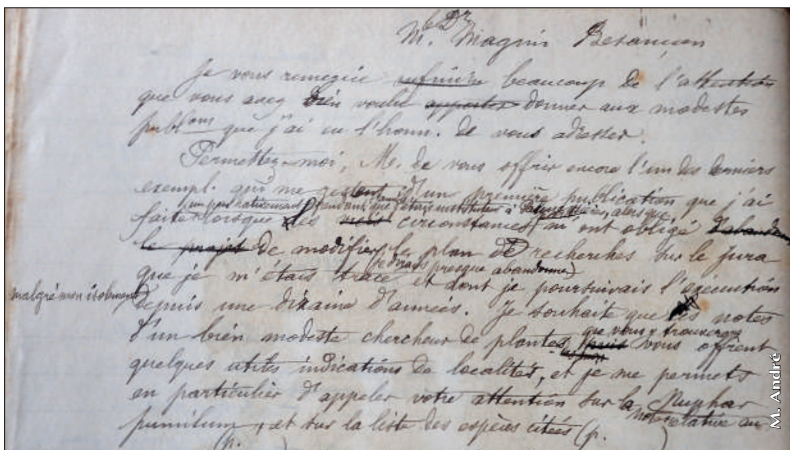 M. le Dr Magnin Besançon
Je vous remercie infiniment beaucoup de l'attention
que vous avez bien voulu apporter donner aux modestes
publ.ons que j'ai eu l'honn. de vous adresser.
Permettez-moi, M. de vous offrir encore l'un des derniers
exempl. qui me restent d'un première publication que j'ai
faite lorsque des circonstances m'ont obligé d'abandonner
le projet de modifier le plan de recherches sur le Jura
(je dirais presque abandonné)
que je m'étais tracé et dont je poursuivais l'exécution
malgré mon isolement
depuis une dizaine d'années. Je souhaite que les notes
que vous y trouverez
d'un bien modeste chercheur de plantes vous offrent
quelques utiles indications de localités, et je me permets
en particulier d'appeler votre attention sur la note relative au Nuphar
pumilum, et sur la liste des espèces citées (p.
(p. )
M. André